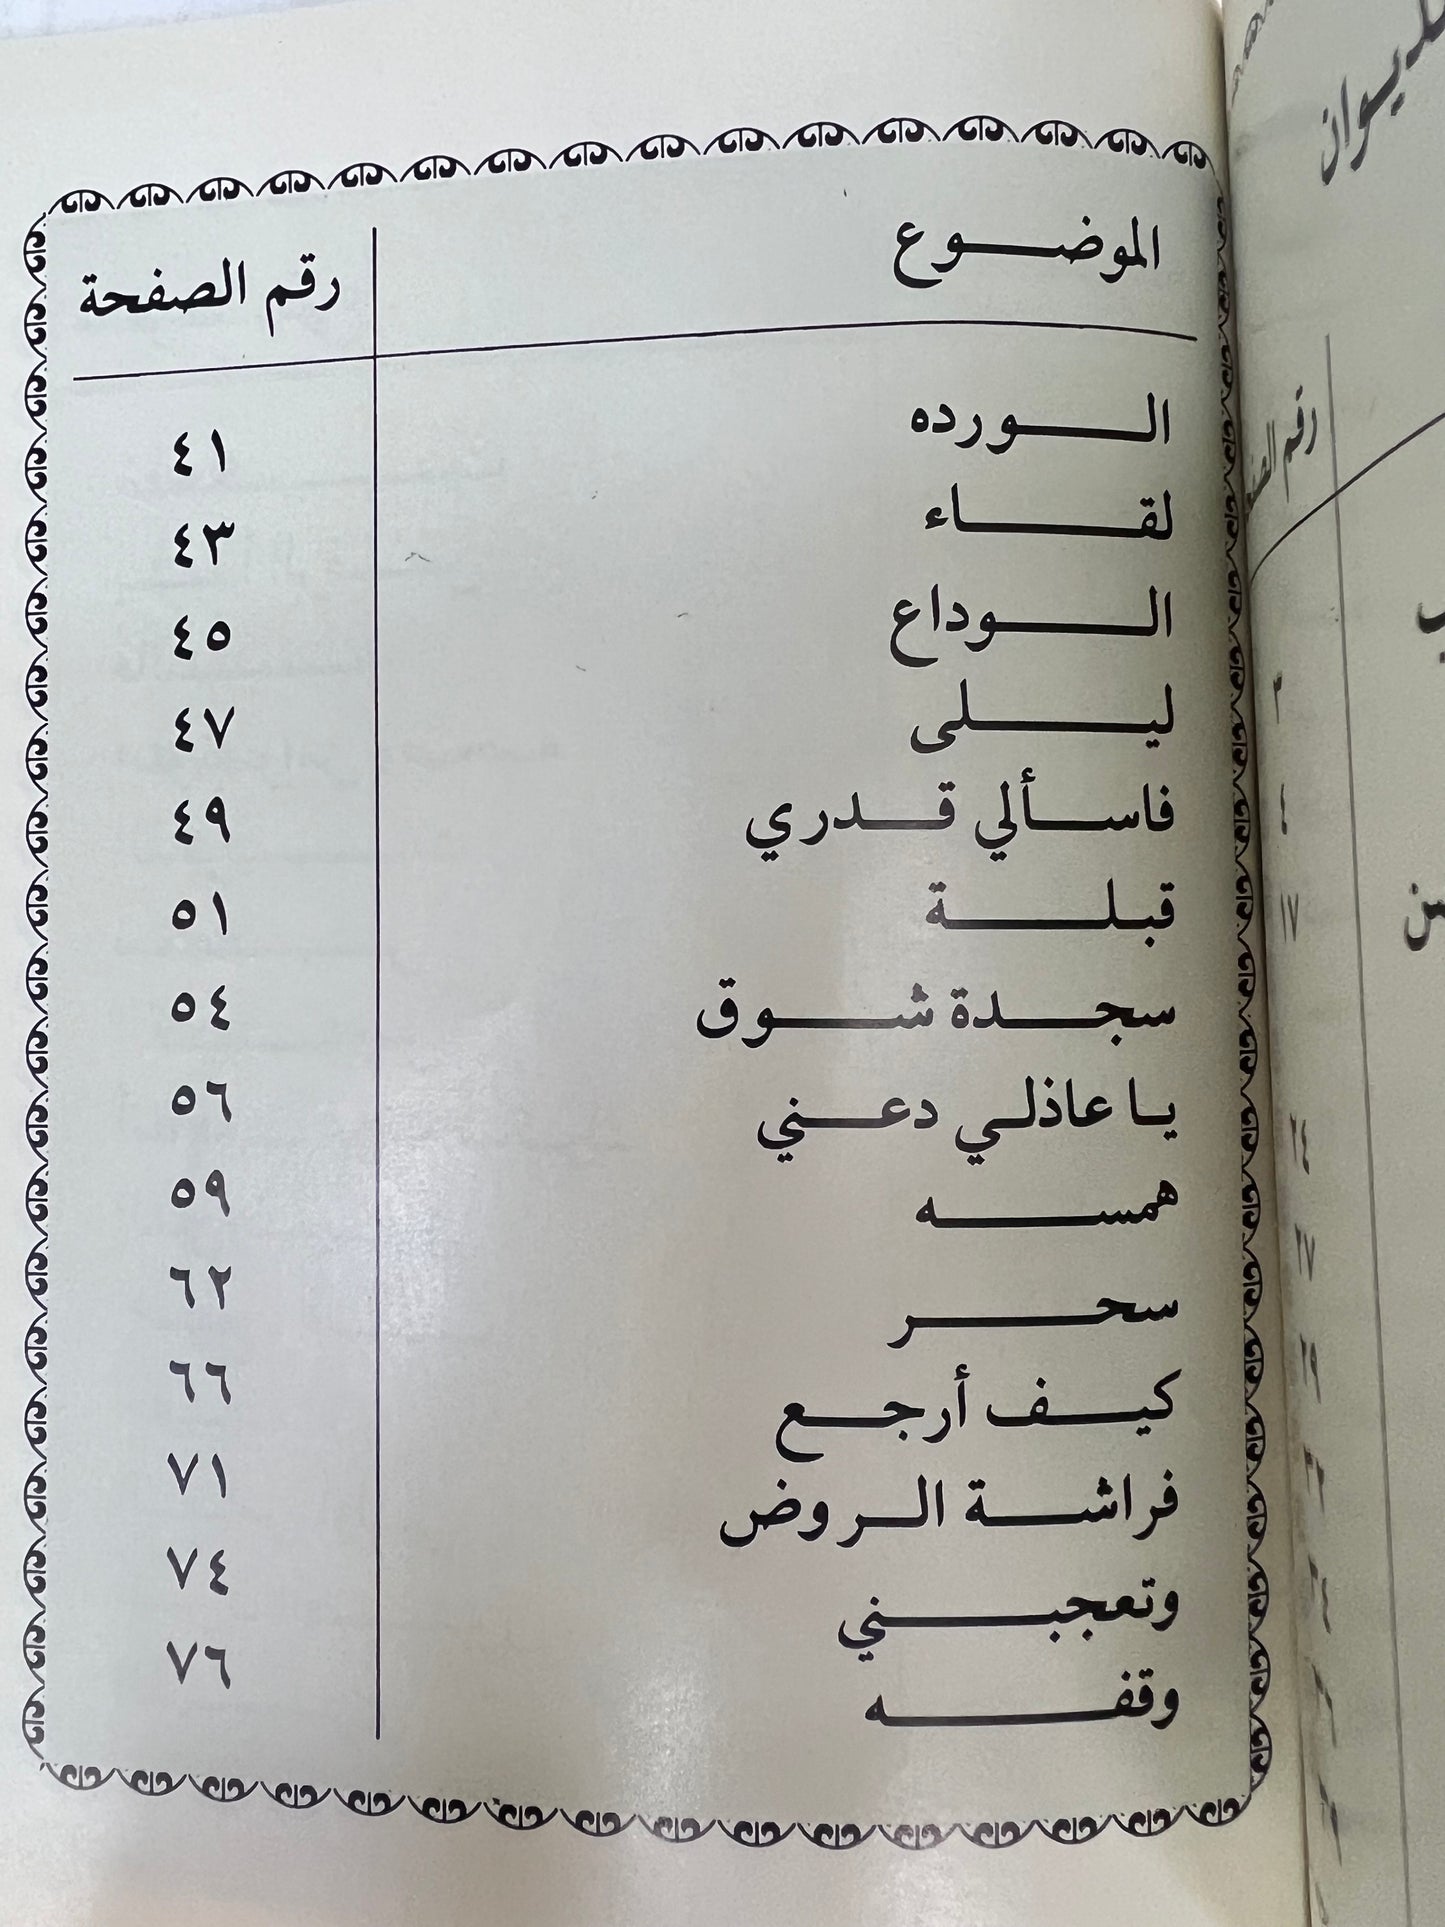 الموضوع رقم الصفحة
الورده ٤١
لقاء ٤٣
الوداع ٤٥
ليلى ٤٧
فاسألي قدري ٤٩
قبلة ٥١
سجدة شوق ٥٤
يا عاذلي دعني ٥٦
همسه ٥٩
سحر ٦٢
كيف أرجع ٦٦
فراشة الروض ٧١
وتعجبني ٧٤
وقفه ٧٦
رقم
٣
٤
١٧
٢٤
٢٧
٢٩
٣٢